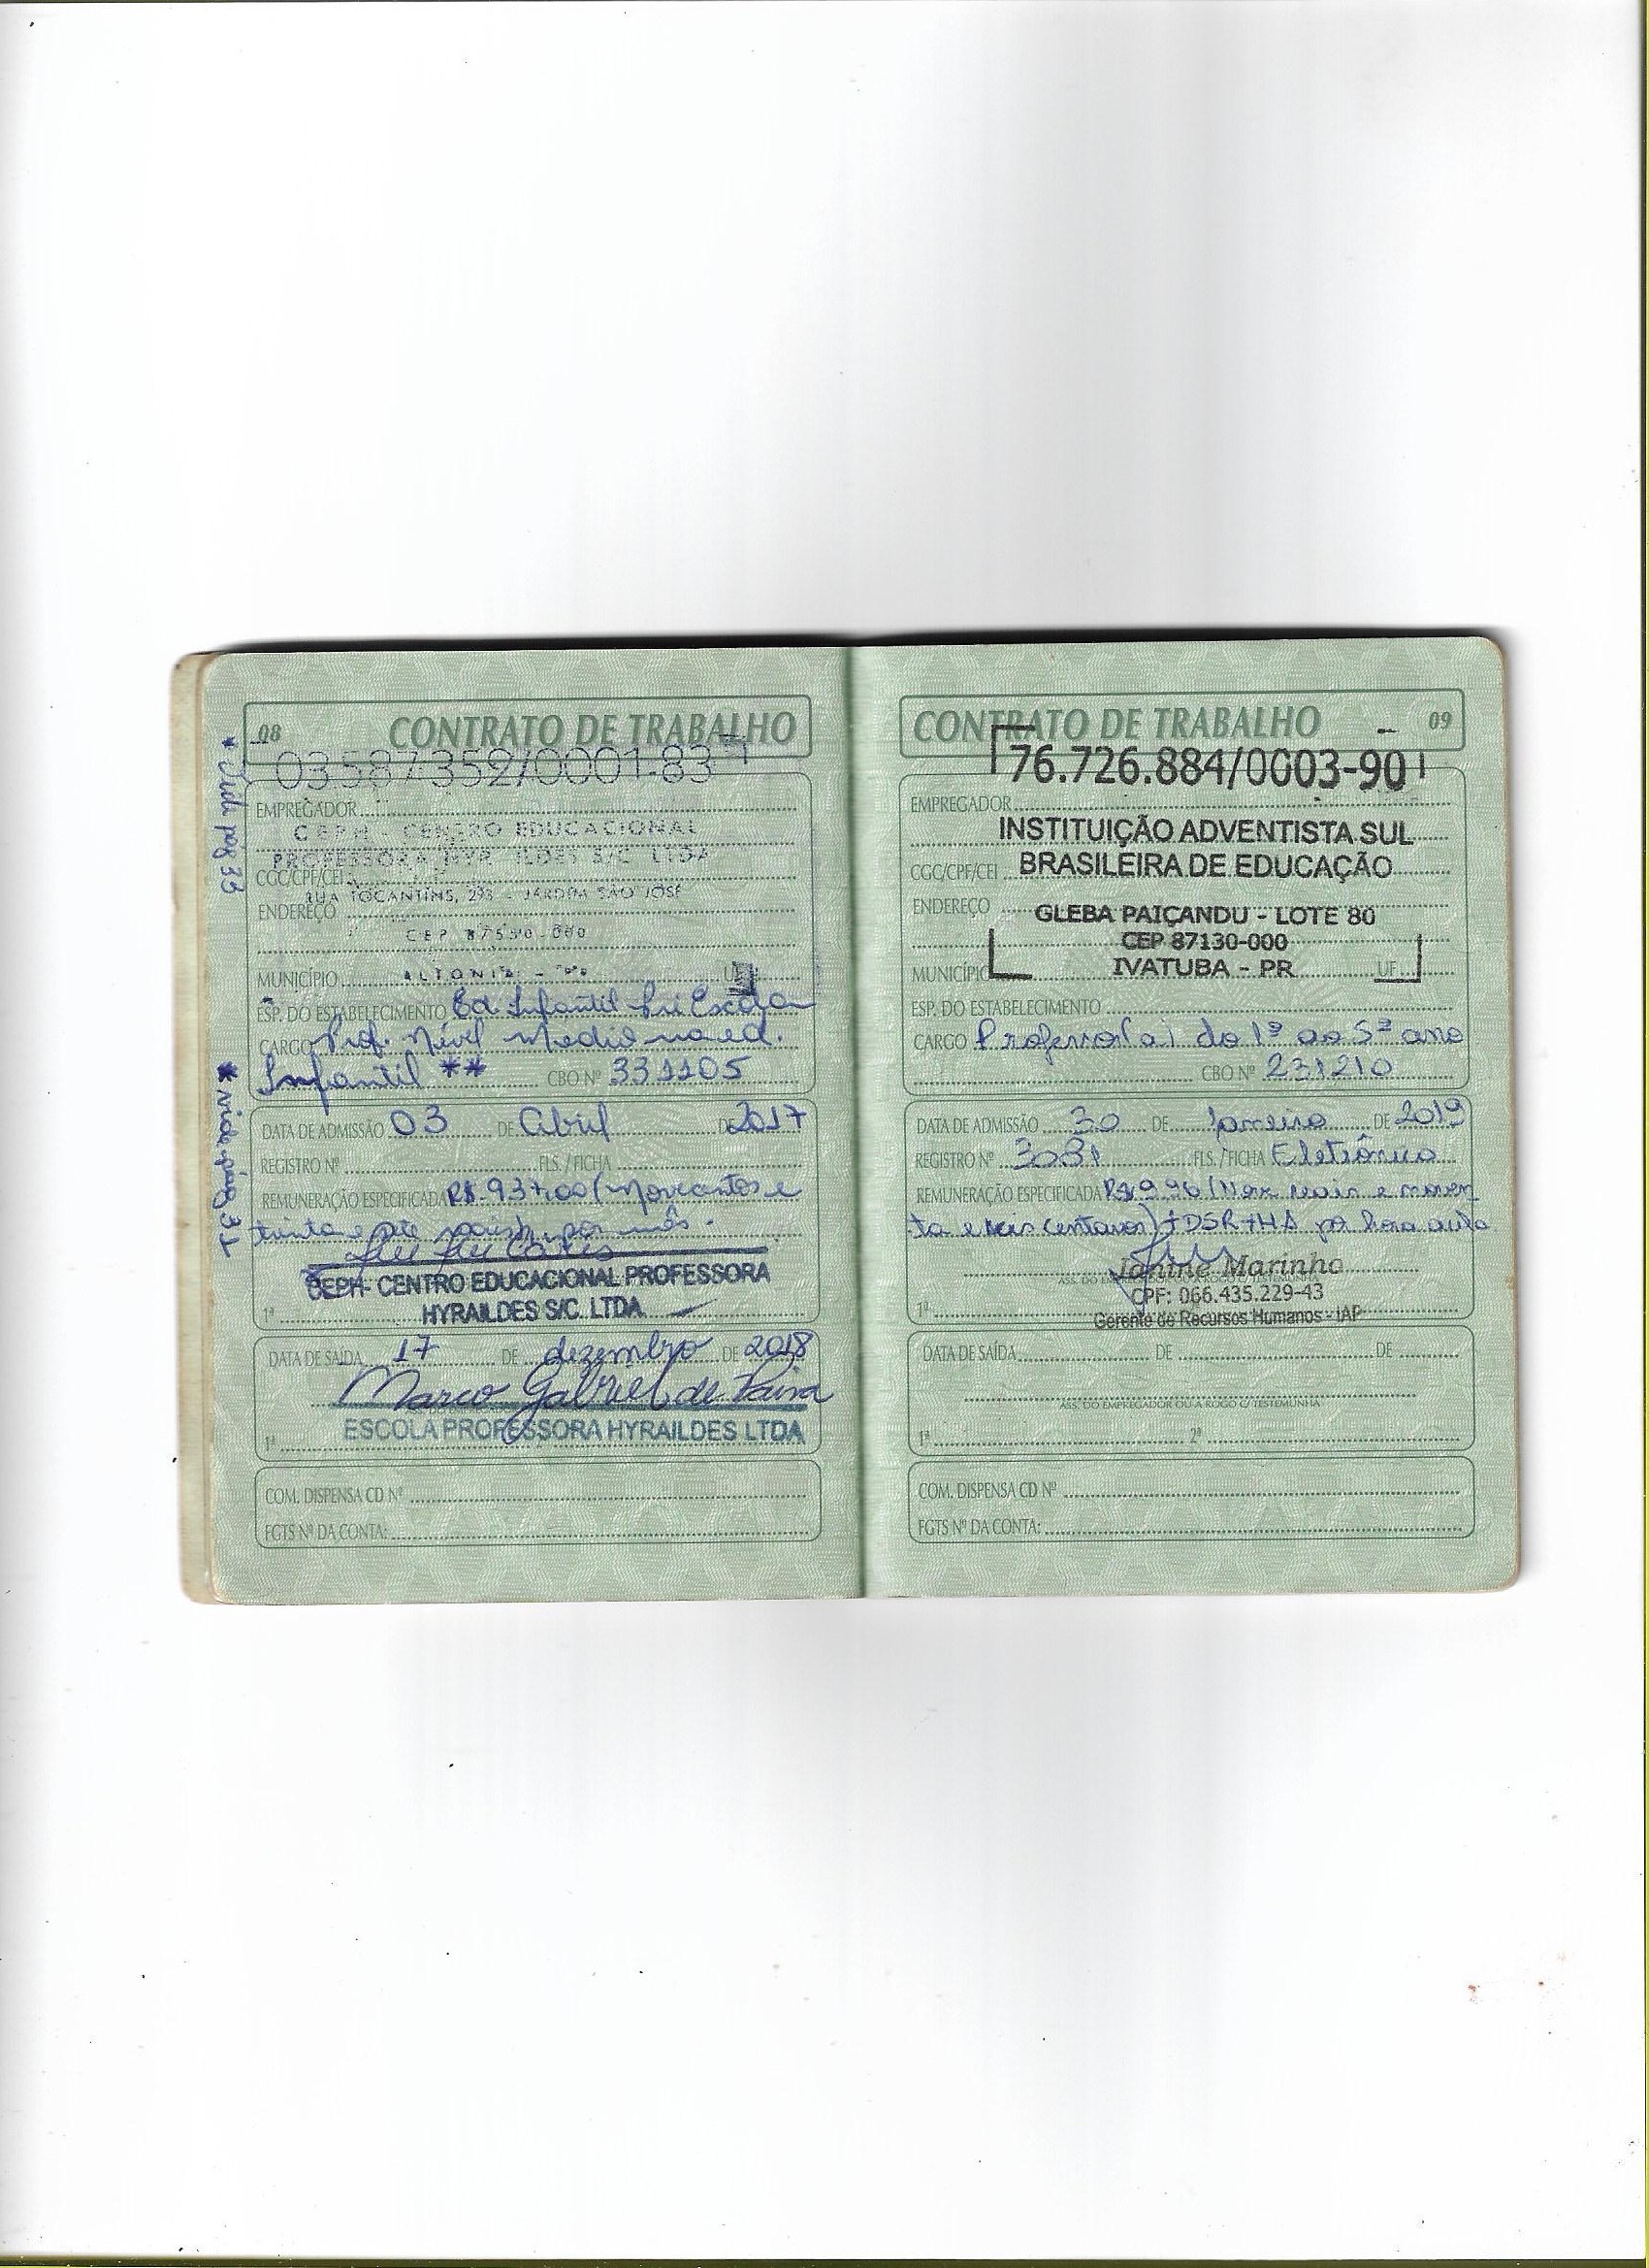 08 CONTRATO DE TRABALHO
03.587.352/0001-83
EMPREGADOR
CEPH - CENTRO EDUCACIONAL
PROFESSORA HYRAILDES S/C LTDA
CGC/CPF/CEI
RUA TOCANTINS, 293 - JARDIM SÃO JOSÉ
ENDEREÇO
CEP 87550-000
MUNICÍPIO ALTONIA - PR UF
ESP. DO ESTABELECIMENTO Ed Infantil Pré Escola
CARGO Prof. Nível Medio na ed.
Infantil ** CBO Nº 331105
DATA DE ADMISSÃO 03 DE Abril DE 2017
REGISTRO Nº FLS. / FICHA
REMUNERAÇÃO ESPECIFICADA R$ 937,00 (Novecentos e
trinta e sete reais) por mês.
CEPH- CENTRO EDUCACIONAL PROFESSORA
HYRAILDES S/C. LTDA.
1ª
DATA DE SAÍDA 17 DE dezembro DE 2018
Marco Gabriel de Paiva
ESCOLA PROFESSORA HYRAILDES LTDA
1ª
COM. DISPENSA CD Nº
FGTS Nº DA CONTA:
* Vide pag 33
* vide pág 31
CONTRATO DE TRABALHO 09
76.726.884/0003-90
EMPREGADOR
INSTITUIÇÃO ADVENTISTA SUL
CGC/CPF/CEI BRASILEIRA DE EDUCAÇÃO
ENDEREÇO GLEBA PAIÇANDU - LOTE 80
CEP 87130-000
MUNICÍPIO IVATUBA - PR UF
ESP. DO ESTABELECIMENTO
CARGO Professor(a) do 1º ao 5º ano
CBO Nº 231210
DATA DE ADMISSÃO 30 DE Janeiro DE 2019
REGISTRO Nº 3031 FLS. / FICHA Eletrônico
REMUNERAÇÃO ESPECIFICADA R$ 9,96 (Nove reais e noven
ta e seis centavos) + DSR + HA por hora aula
Janine Marinho
ASS. DO EMPREGADOR OU A ROGO C/ TESTEMUNHA
CPF: 066.435.229-43
1ª Gerente de Recursos Humanos - IAP
DATA DE SAÍDA DE DE
ASS. DO EMPREGADOR OU A ROGO C/ TESTEMUNHA
1ª 2ª
COM. DISPENSA CD Nº
FGTS Nº DA CONTA: